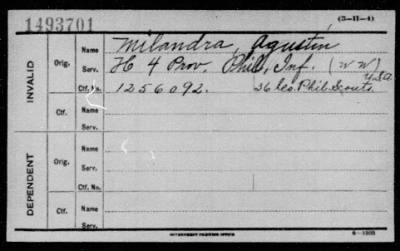 1493701
(3-11-4)
INVALID
Orig.
Name
Milandra, Agustin
Serv.
H 4 Prov. Phil. Inf. (WW)
Ctf. No.
1256092. 36 Co. Phil Scouts
Ctf.
Name
Serv.
DEPENDENT
Orig.
Name
Serv.
Ctf. No.
Ctf.
Name
Serv.
GOVERNMENT PRINTING OFFICE